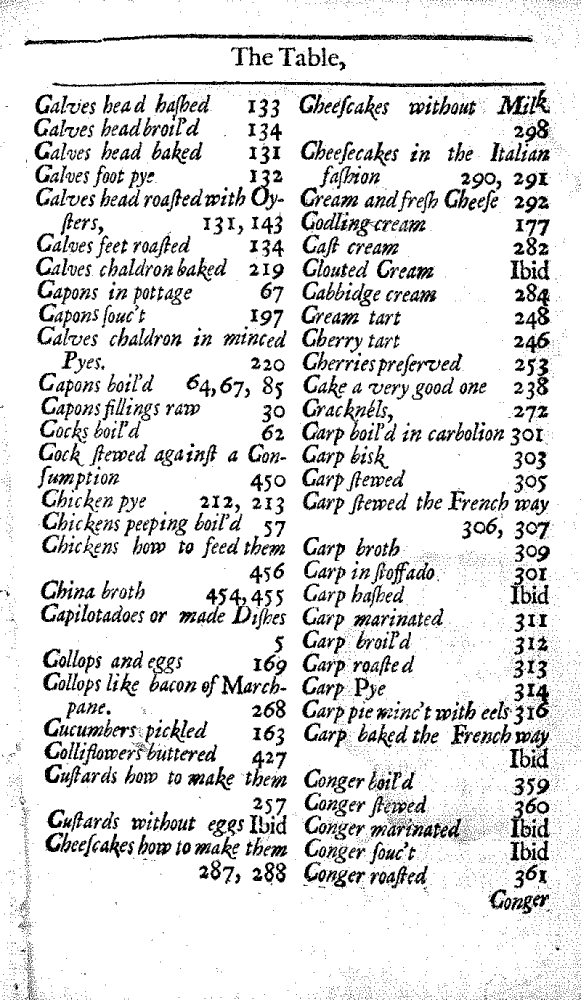 The Table,
Calves head haſhed 133
Calves head broil'd 134
Calves head baked 131
Calves foot pye 132
Calves head roaſted with Oy-
ſters, 131, 143
Calves feet roaſted 134
Calves chaldron baked 219
Capons in pottage 67
Capons ſouc't 197
Calves chaldron in minced
Pyes. 220
Capons boil'd 64, 67, 85
Capons fillings raw 30
Cocks boil'd 62
Cock ſtewed againſt a Con-
ſumption 450
Chicken pye 212, 213
Chickens peeping boil'd 57
Chickens how to feed them
456
China broth 454, 455
Capilotadoes or made Diſhes
5
Collops and eggs 169
Collops like bacon of March-
pane. 268
Cucumbers pickled 163
Colliflowers buttered 427
Cuſtards how to make them
257
Cuſtards without eggs Ibid
Cheeſcakes how to make them
287, 288
Cheeſcakes without Milk
298
Cheeſecakes in the Italian
faſhion 290, 291
Cream and freſh Cheeſe 292
Codling-cream 177
Caſt cream 282
Clouted Cream Ibid
Cabbidge cream 284
Cream tart 248
Cherry tart 246
Cherries preſerved 253
Cake a very good one 238
Cracknels, 272
Carp boil'd in carbolion 301
Carp bisk 303
Carp ſtewed 305
Carp ſtewed the French way
306, 307
Carp broth 309
Carp in ſtoffado 301
Carp haſhed Ibid
Carp marinated 311
Carp broil'd 312
Carp roaſted 313
Carp Pye 314
Carp pie minc't with eels 316
Carp baked the French way
Ibid
Conger boil'd 359
Conger ſtewed 360
Conger marinated Ibid
Conger ſouc't Ibid
Conger roaſted 361
Conger